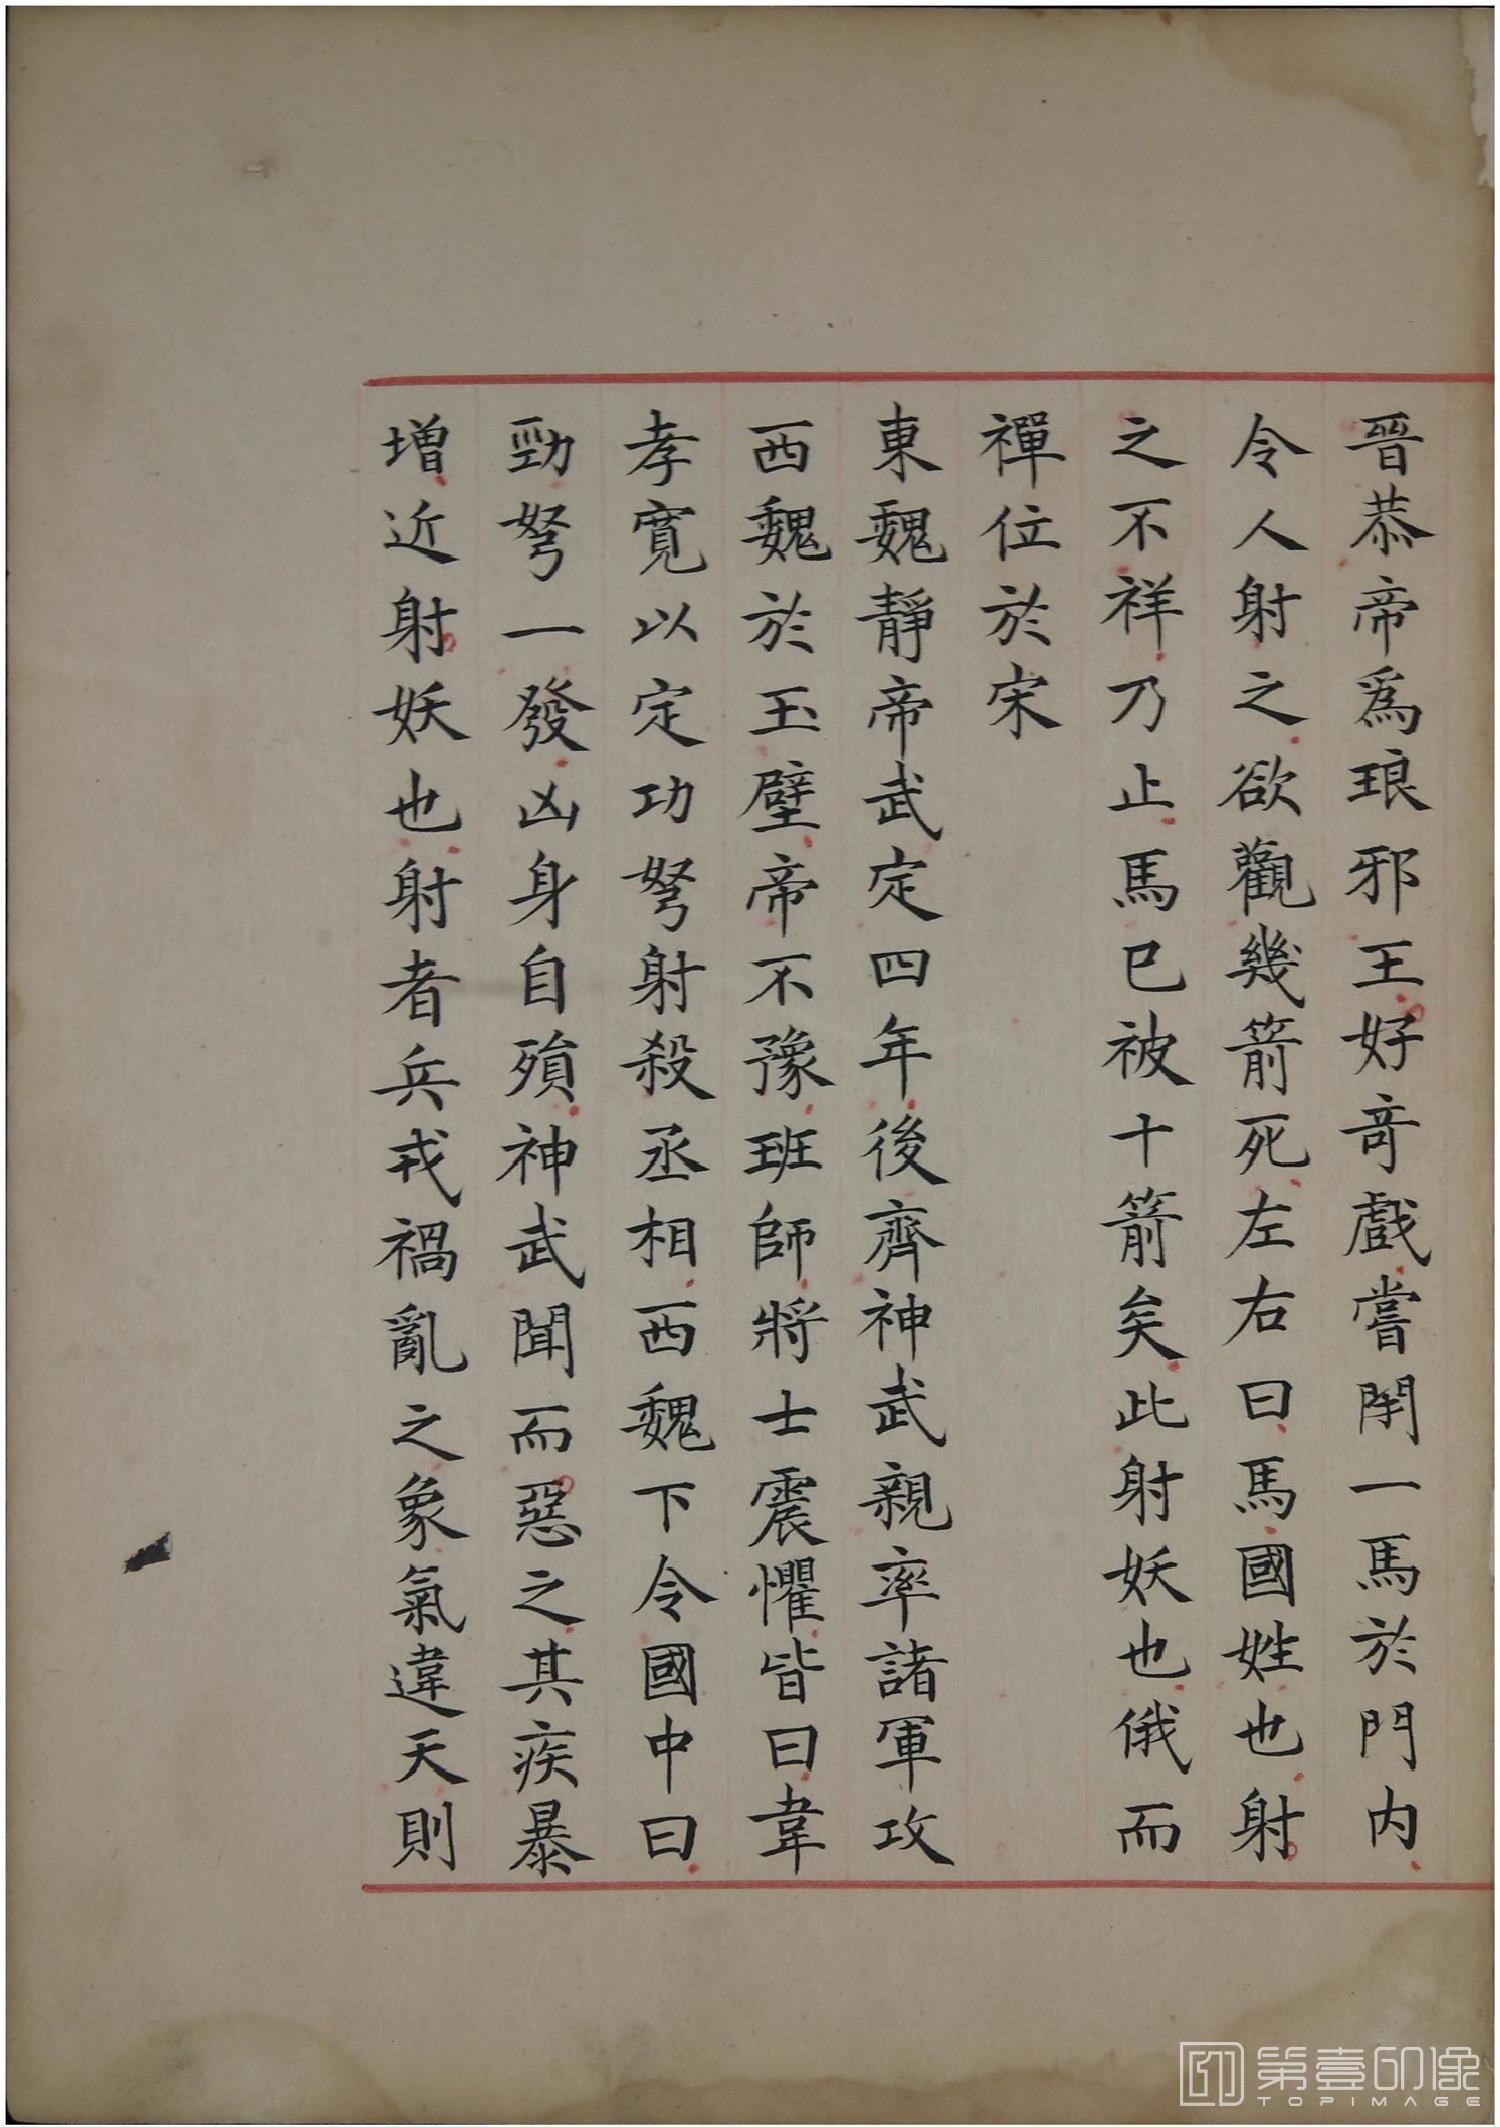 晉恭帝爲琅邪王好奇戲嘗閉一馬於門內
令人射之欲觀幾箭死左右曰馬國姓也射
之不祥乃止馬已被十箭矣此射妖也俄而
禪位於宋
東魏靜帝武定四年後齊神武親率諸軍攻
西魏於玉壁帝不豫班師將士震懼皆曰韋
孝寬以定功弩射殺丞相西魏下令國中曰
勁弩一發凶身自殞神武聞而惡之其疾暴
增近射妖也射者兵戎禍亂之象氣違天則
第壹印像
TOPIMAGE